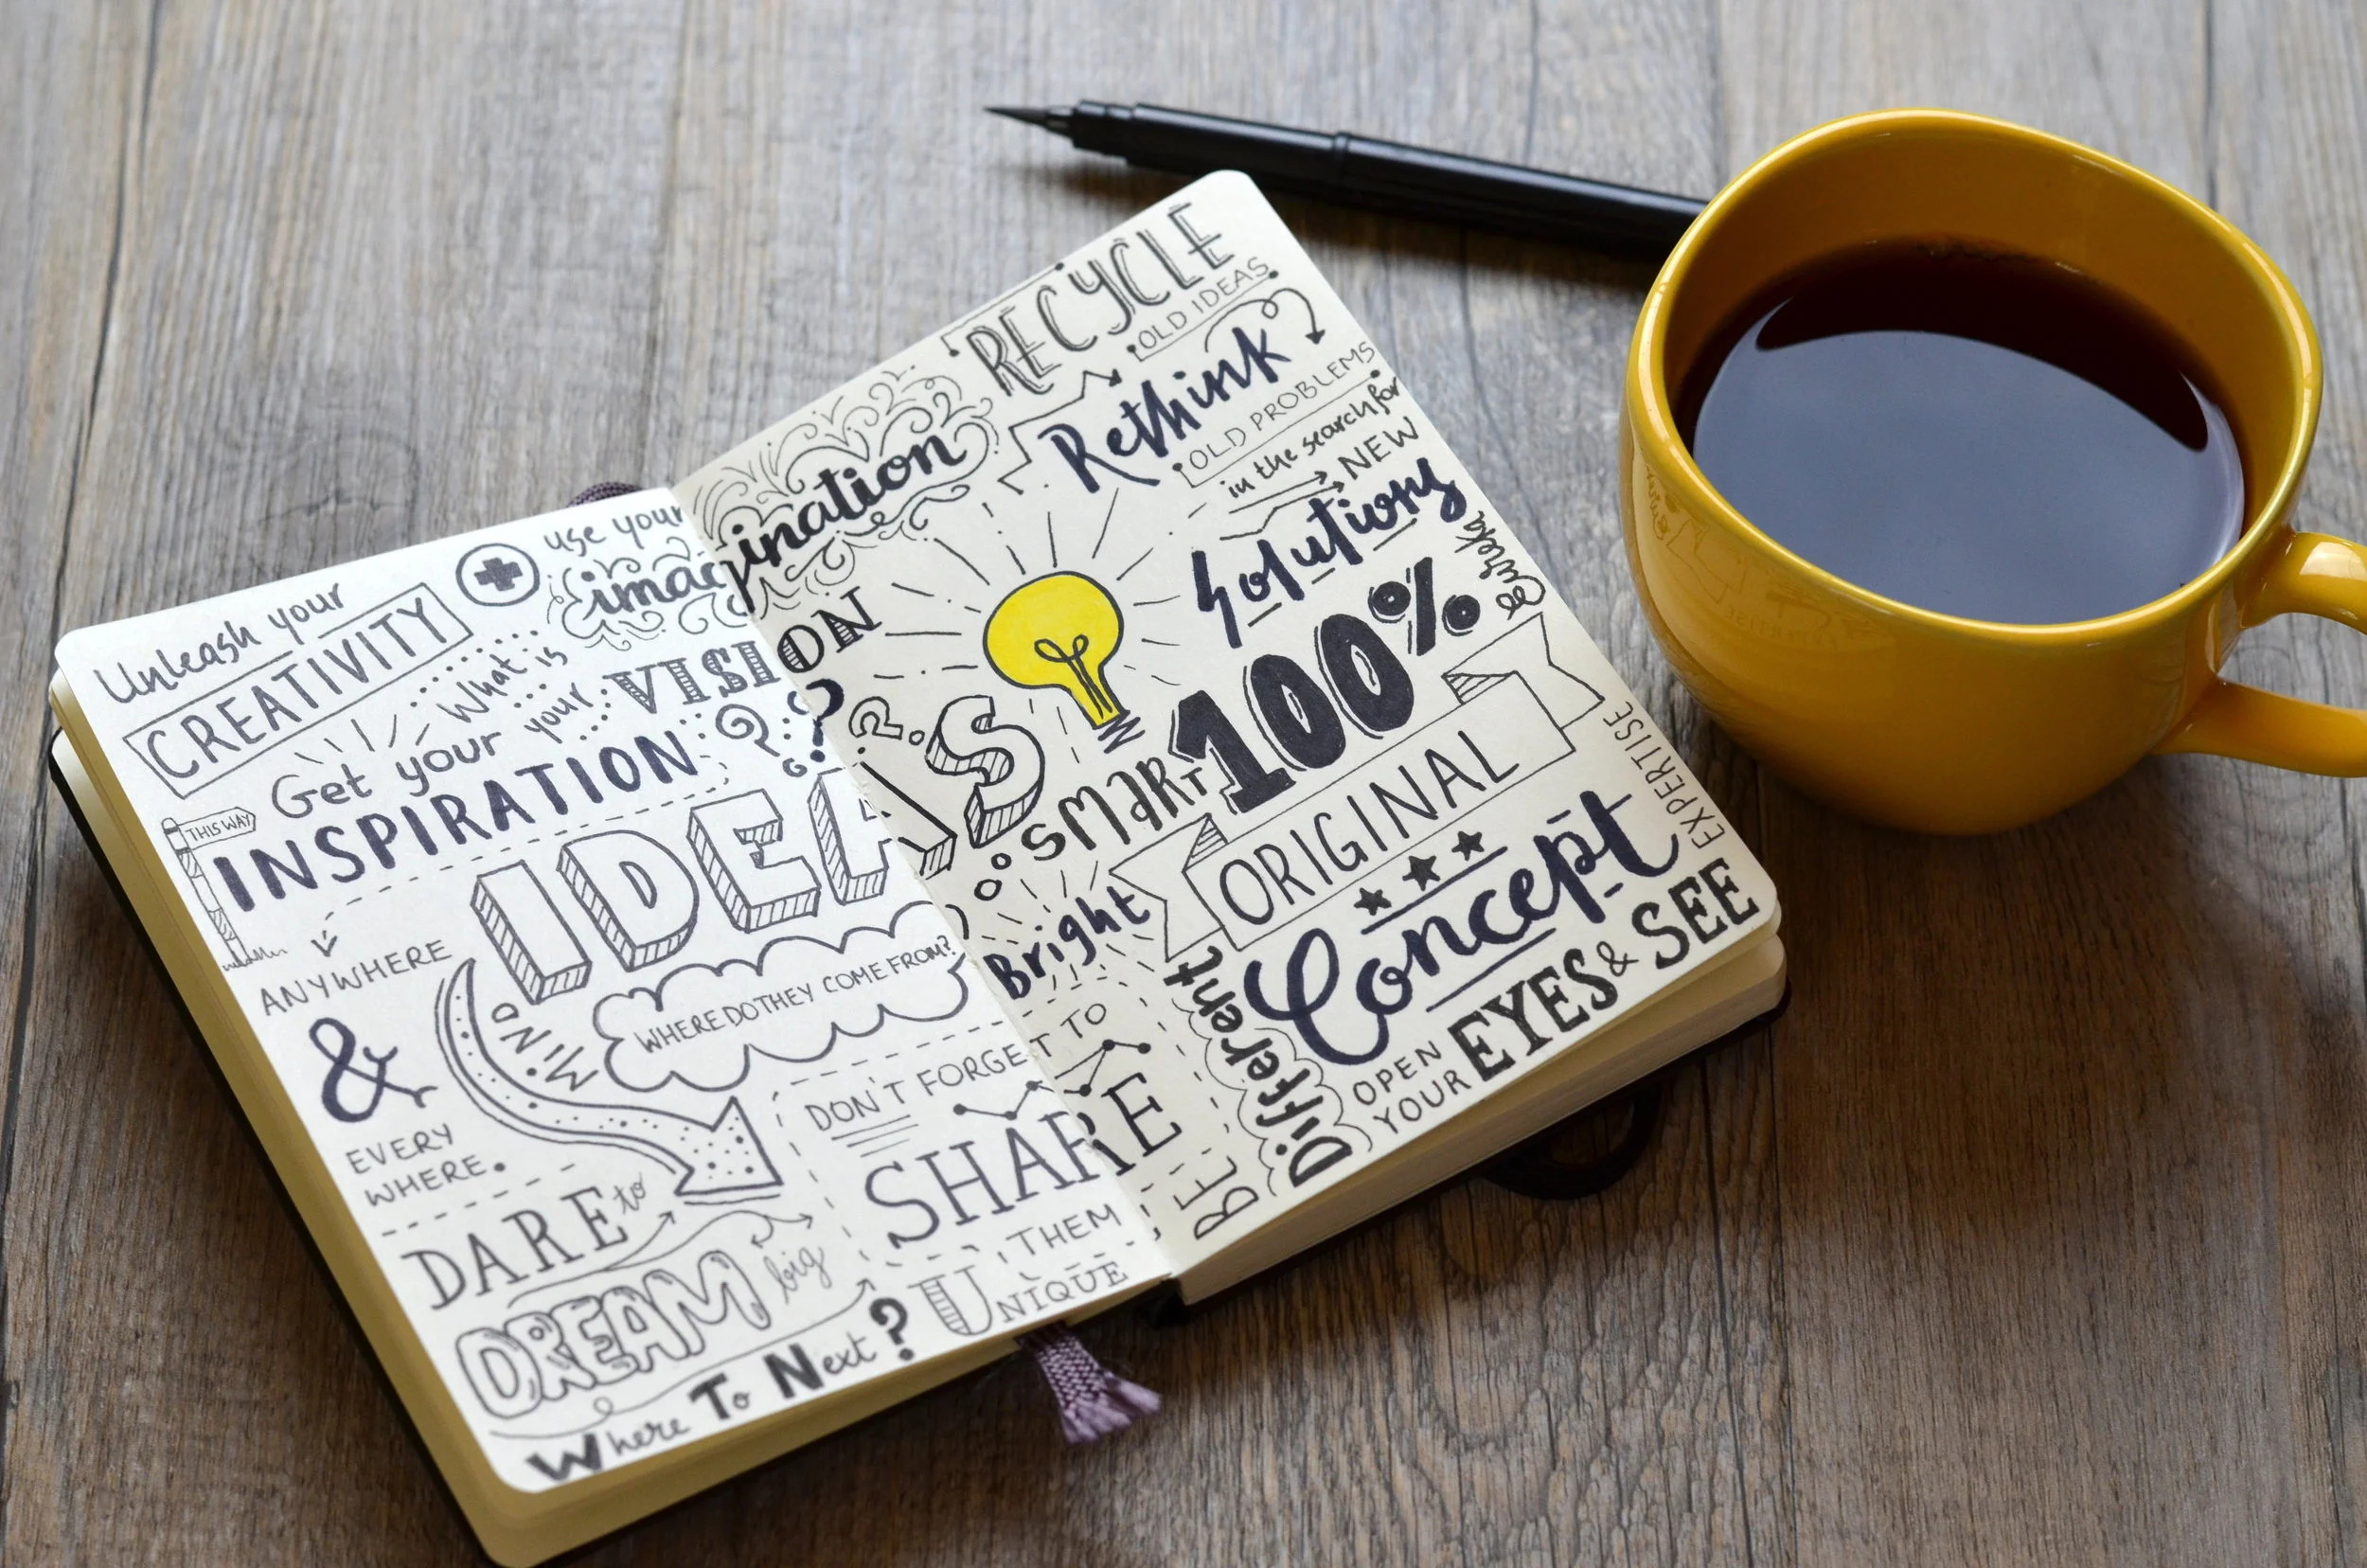 Unleash your
CREATIVITY
use your
imagination
What is
your VISION
??
Get your
INSPIRATION
THIS WAY
ANYWHERE
&
EVERY
WHERE.
IDEAS
MIND
WHERE DO THEY COME FROM?
DON'T FORGET TO
SHARE
THEM
DARE to
DREAM big
UNIQUE
Where To Next?
RECYCLE
OLD IDEAS
Rethink
OLD PROBLEMS
in the search for
NEW
Solutions
Eureka
SMART
100%
ORIGINAL
Bright
Concept
EXPERTISE
BE
Different
OPEN
YOUR
EYES & SEE